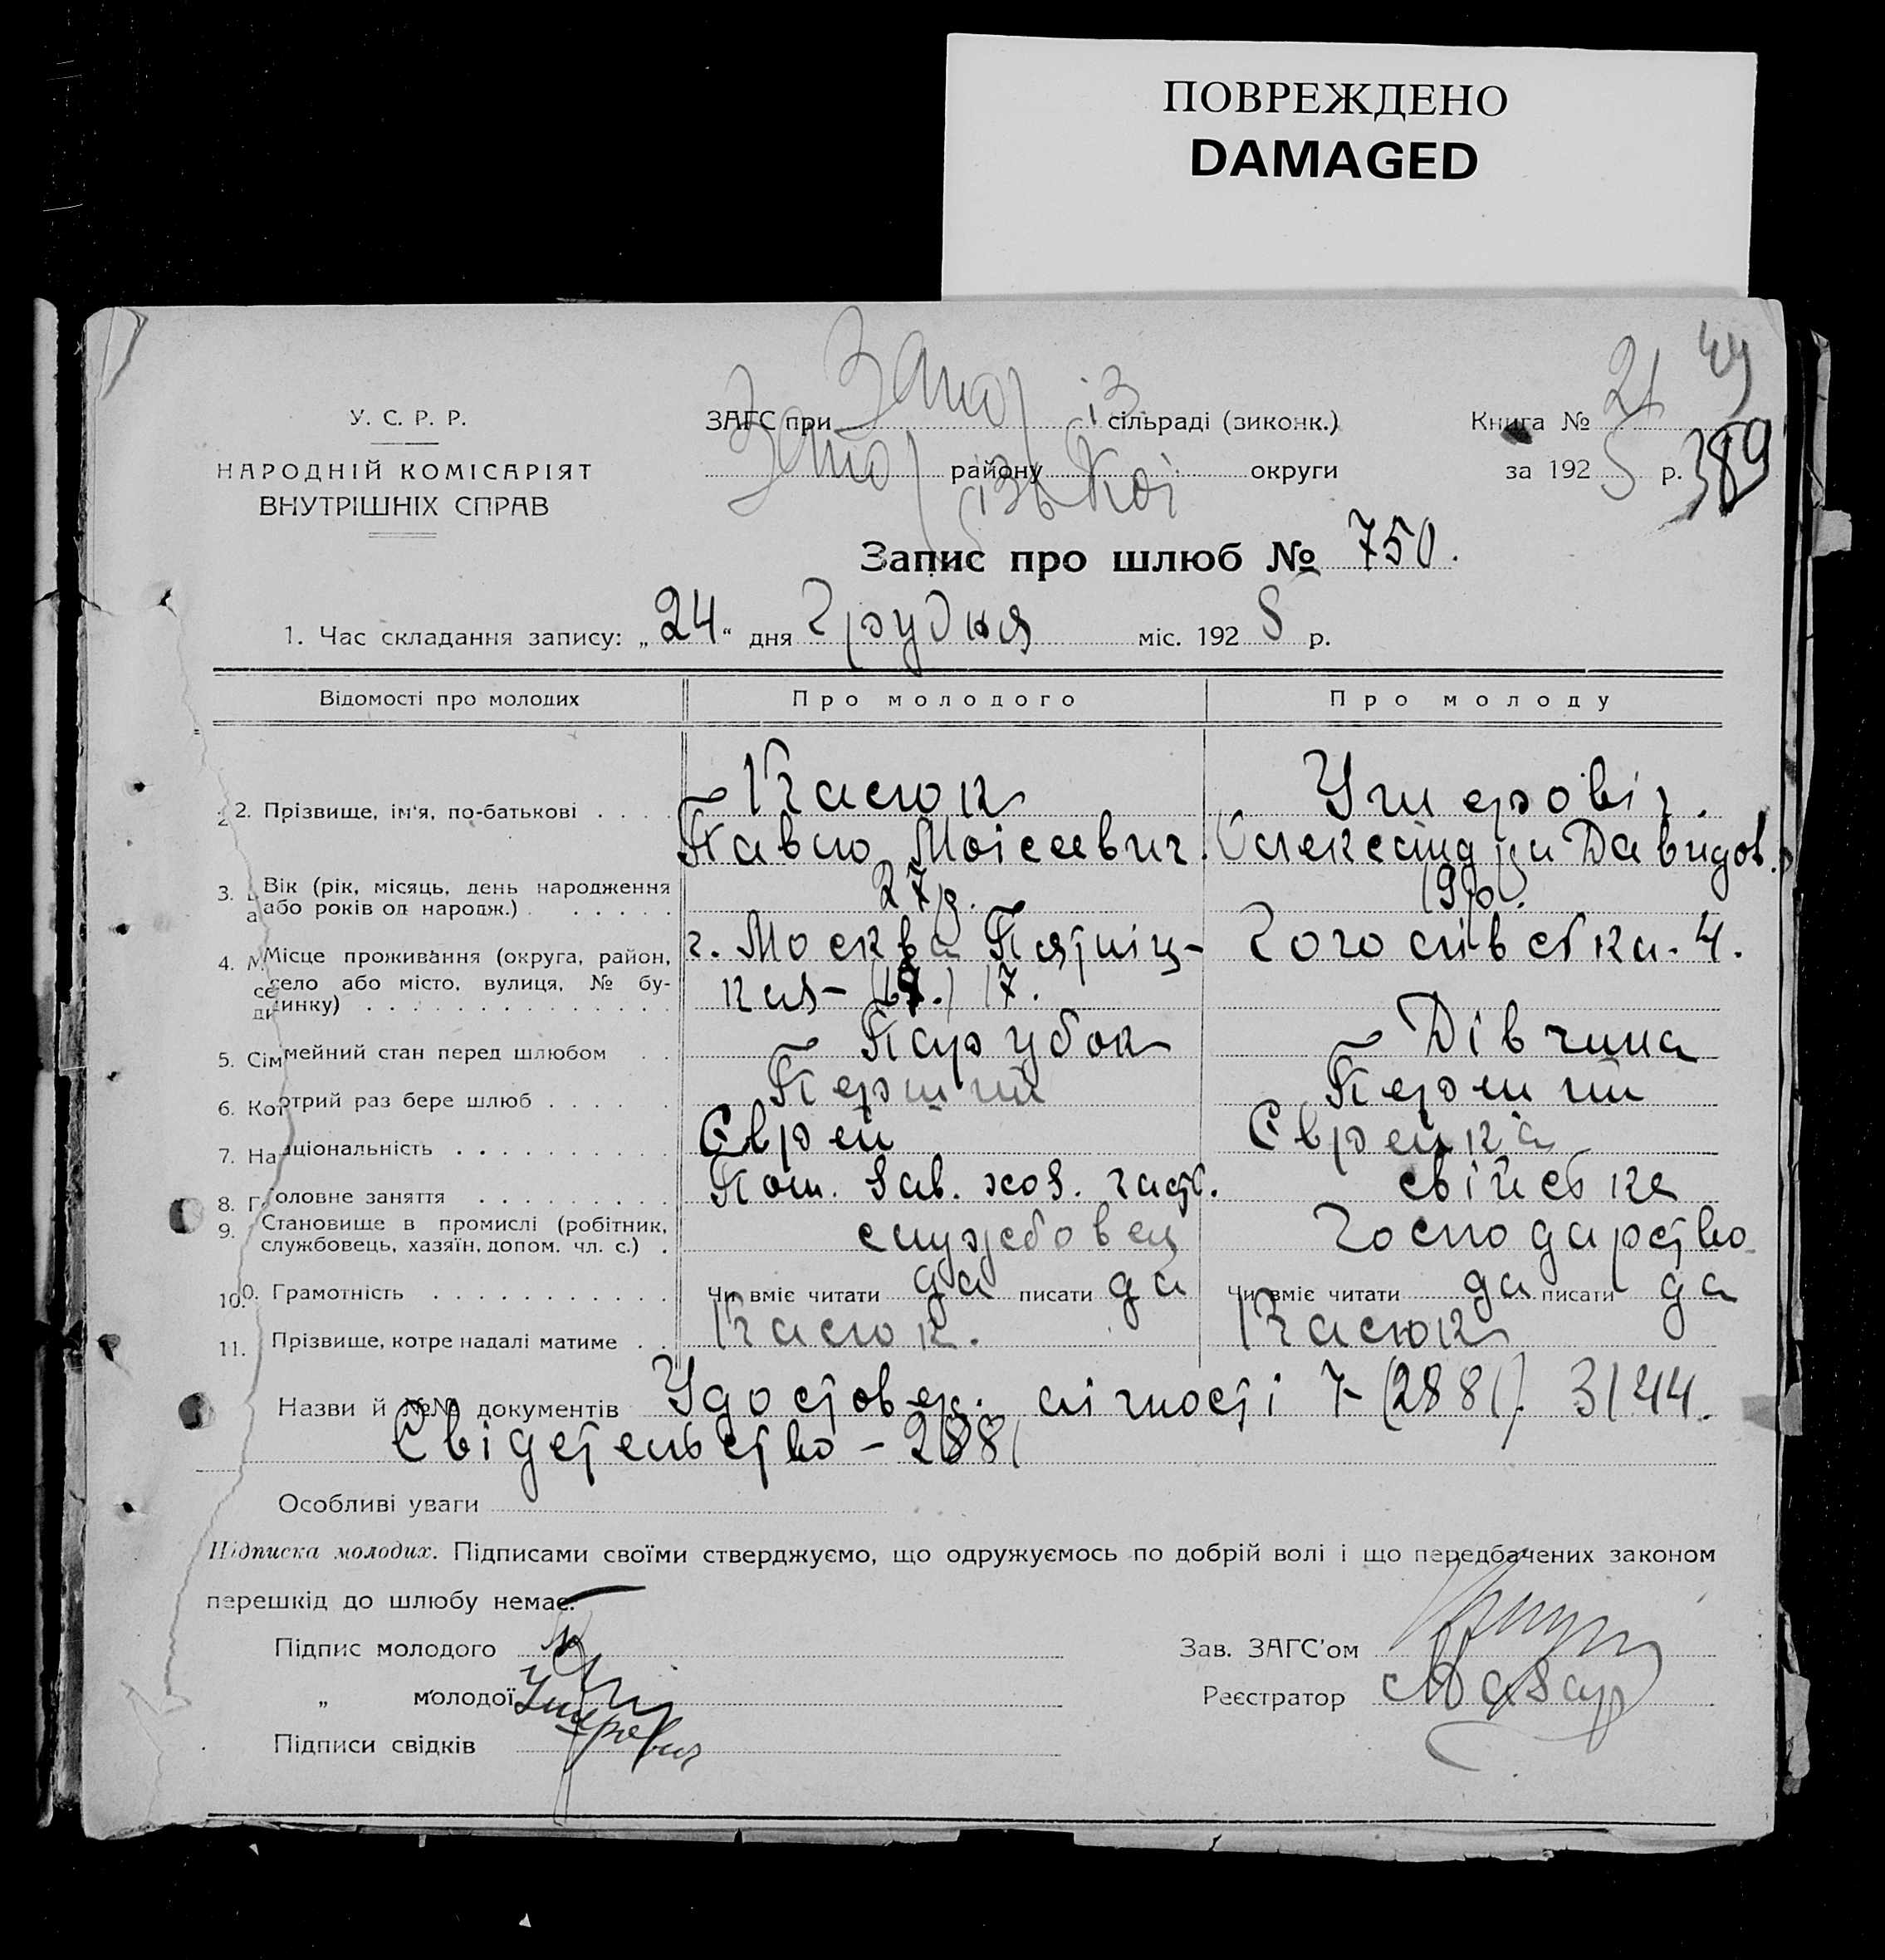 ПОВРЕЖДЕНО
DAMAGED
49
У. С. Р. Р.
НАРОДНІЙ КОМІСАРІЯТ
ВНУТРІШНІХ СПРАВ
ЗАГС при Запоріз сільраді (зиконк.)
Запор району ізької округи
Книга № 21
за 1925 р. 389
Запис про шлюб № 750.
1. Час складання запису: „24“ дня Грудня міс. 1925 р.
Відомості про молодих Про молодого Про молоду
2. Прізвище, ім'я, по-батькові Касюк Ушерович.
Павло Моісеевич. Олександра Давидов.
3. Вік (рік, місяць, день народження або років од народж.) 27 р. 19 р.
4. Місце проживання (округа, район, село або місто, вулиця, № будинку) г. Москва Пятніц-
кая- 17. Гоголівстка. 4.
5. Сімейний стан перед шлюбом Парубок Дівчина
6. Котрий раз бере шлюб Перший Перший
7. Національність Єврей Єврейка
8. Головне заняття Пом. Зав. хоз. част. свійстке
9. Становище в промислі (робітник, службовець, хазяїн, допом. чл. с.) службовец господарство
10. Грамотність Чи вміє читати да писати да Чи вміє читати да писати да
11. Прізвище, котре надалі матиме Касюк. Касюк
Назви й №№ документів Удостовер. лічності 7-(2881). 3144.
Свідетельство - 2881
Особливі уваги
Підписка молодих. Підписами своїми стверджуємо, що одружуємось по добрій волі і що передбачених законом
перешкід до шлюбу немає.
Підпис молодого
Зав. ЗАГС'ом
„ молодої Ушерович
Реєстратор Мазар
Підписи свідків